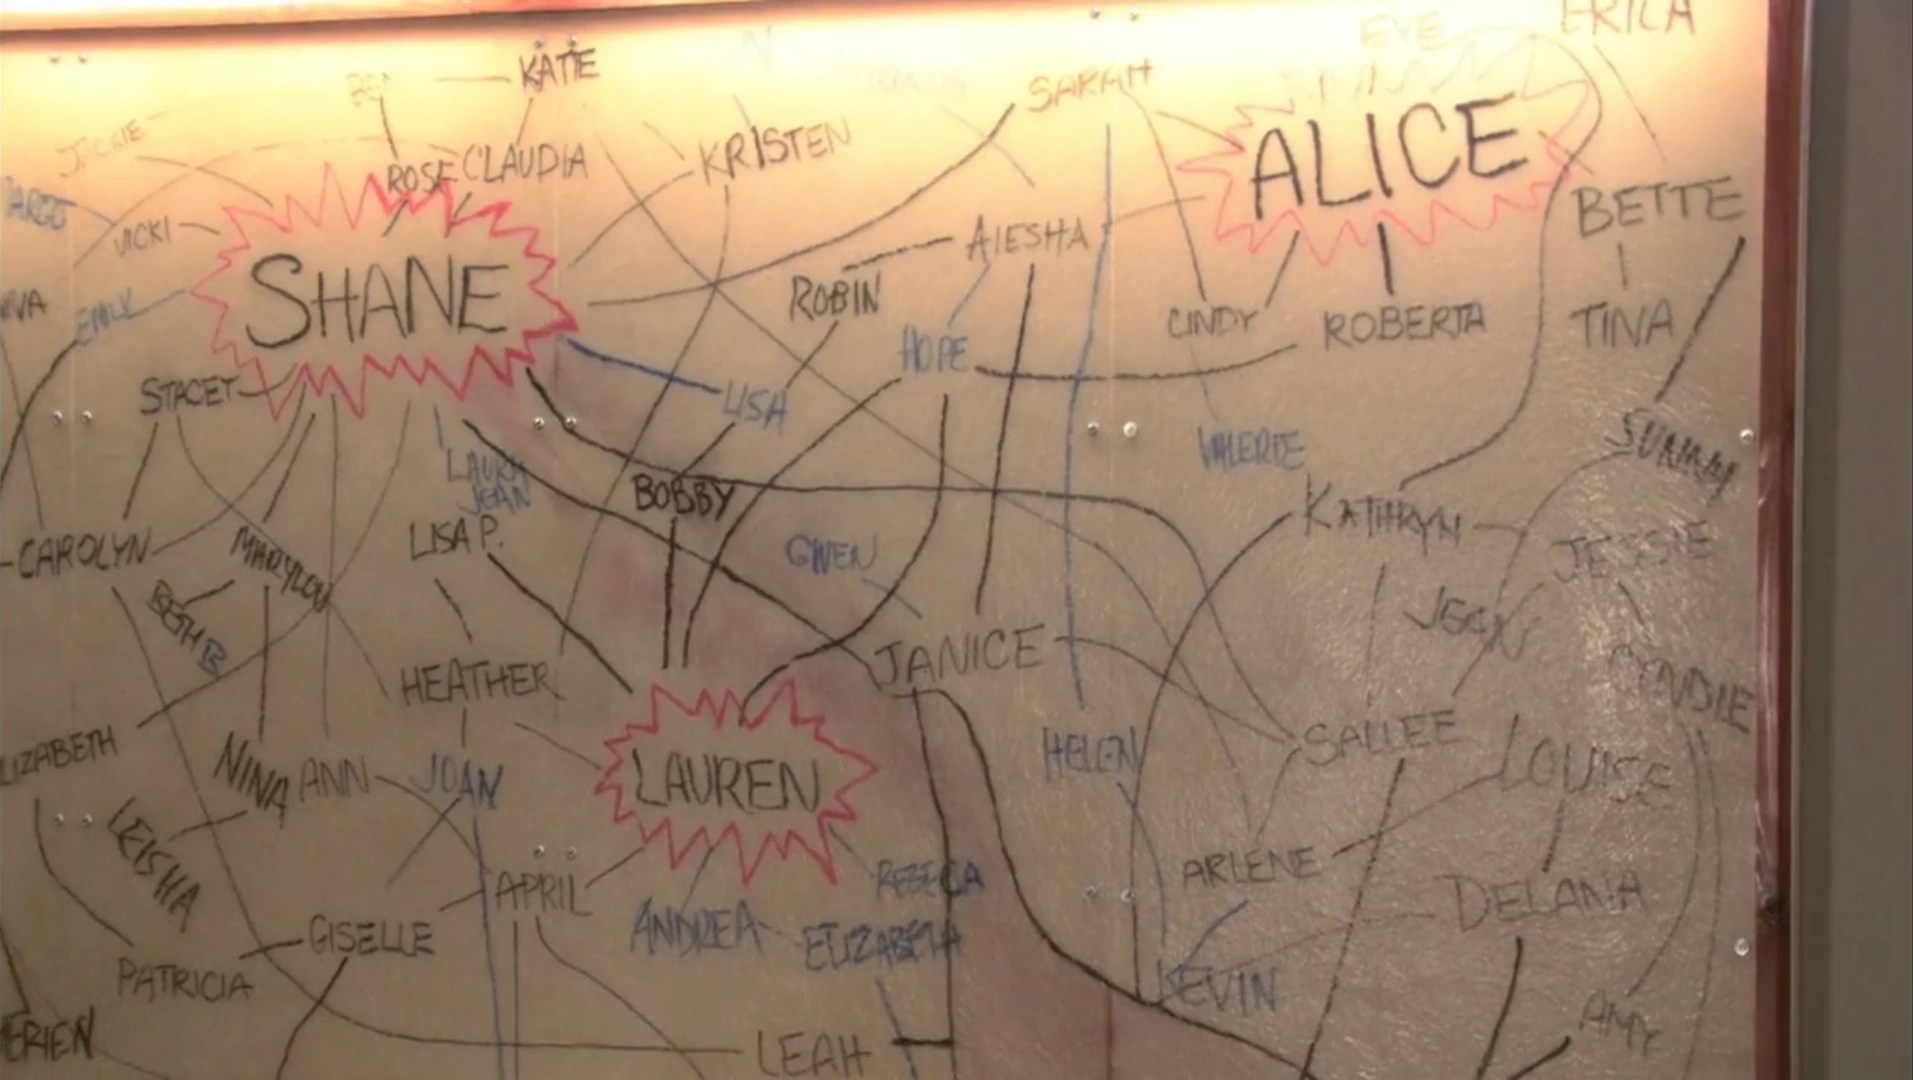 ERICA
EVE
KATIE
SARAH
JACKIE
ROSE
CLAUDIA
KRISTEN
ALICE
BETTE
VICKI
AIESHA
SHANE
ROBIN
EMILY
CINDY
ROBERTA
TINA
HOPE
STACEY
LISA
LAURA
JEAN
VALERIE
BOBBY
KATHRYN
LISA P.
CAROLYN
MARYLOU
GWEN
JESSIE
BETH B
JEAN
JANICE
HEATHER
SALLEE
HELEN
LIZABETH
NINA
ANN
JOAN
LAUREN
LOUISE
LEISHA
ARLENE
APRIL
REBECA
DELANA
ANDREA
ELIZABETH
GISELLE
PATRICIA
KEVIN
AMY
LEAH